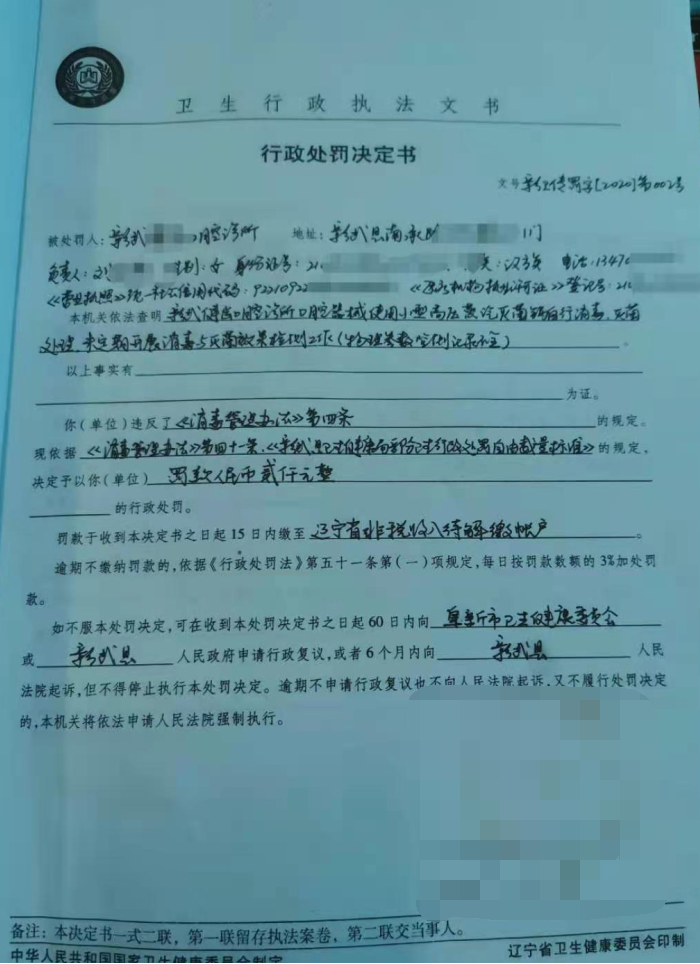 卫生行政执法文书
行政处罚决定书
文号 新卫传罚字[2020]第002号
被处罚人：新武 口腔诊所 地址：新武县南承 1门
负责人：刘 性别：女 身份证号：21 族：汉族 电话：13470
《营业执照》统一社会信用代码：92210922 《 执业许可证》登记号：21
本机关依法查明 新武 口腔诊所口腔器械使用小型高压蒸汽灭菌锅自行消毒、灭菌
处理，未定期开展消毒与灭菌效果检测工作（物理参数监测记录不全）。
以上事实有
为证。
你（单位）违反了《消毒管理办法》第四条 的规定。
现依据《消毒管理办法》第四十一条、《新武县卫生健康局部分卫生行政处罚自由裁量标准》的规定，
决定予以你（单位） 罚款人民币贰仟元整
的行政处罚。
罚款于收到本决定书之日起 15 日内缴至 辽宁省非税收入待解缴帐户 。
逾期不缴纳罚款的，依据《行政处罚法》第五十一条第（一）项规定，每日按罚款数额的 3%加处罚
款。
如不服本处罚决定，可在收到本处罚决定书之日起 60 日内向 阜新市卫生健康委员会
或 新武县 人民政府申请行政复议，或者 6 个月内向 新武县 人民
法院起诉，但不得停止执行本处罚决定。逾期不申请行政复议也不向人民法院起诉，又不履行处罚决定
的，本机关将依法申请人民法院强制执行。
备注：本决定书一式二联，第一联留存执法案卷，第二联交当事人。
中华人民共和国国家卫生健康委员会制定 辽宁省卫生健康委员会印制